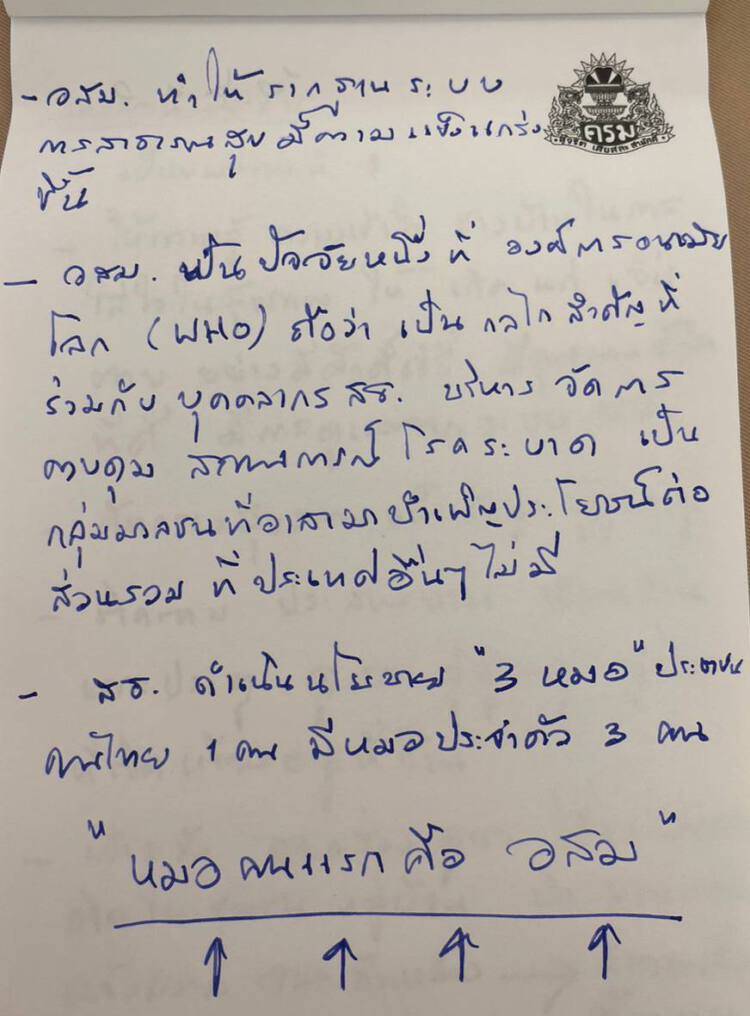 - อสม. ทำให้รากฐานระบบ
การสาธารณสุขมีความแข็งแกร่ง
ขึ้น
ครม
ซื่อสัตย์ เสียสละ สามัคคี
- อสม. เป็นปัจจัยหนึ่งที่ องค์การอนามัย
โลก (WHO) ถือว่า เป็นกลไกสำคัญที่
ร่วมกับ บุคคลากร สธ. บริหาร จัดการ
ควบคุม สถานการณ์โรคระบาด เป็น
กลุ่มมวลชนที่อาสามาบำเพ็ญประโยชน์ต่อ
ส่วนรวม ที่ประเทศอื่นๆ ไม่มี
- สธ. ดำเนินนโยบาย "3 หมอ" ประชาชน
คนไทย 1 คน มีหมอประจำตัว 3 คน
"หมอคนแรกคือ อสม"